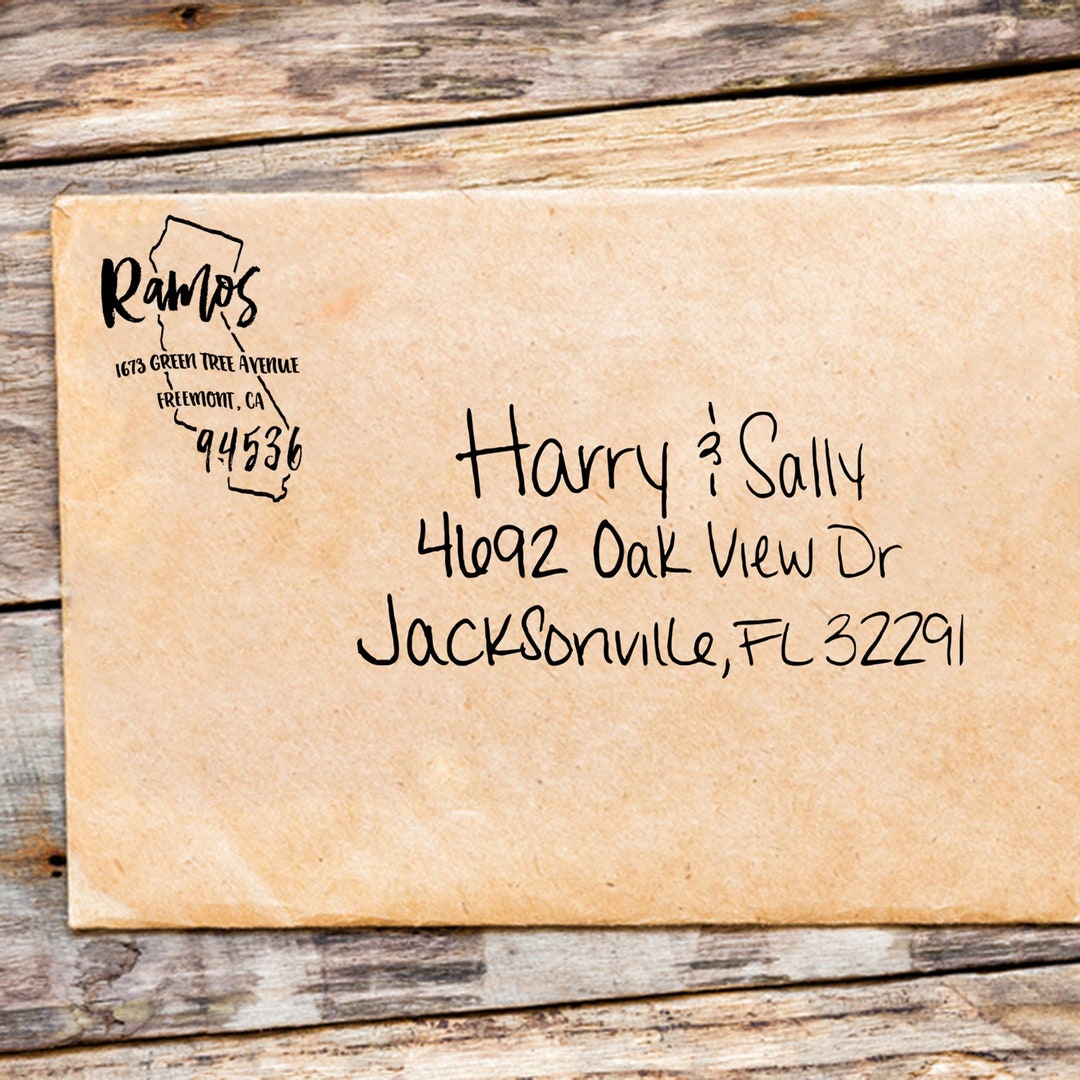 Ramos
1673 GREEN TREE AVENUE
FREEMONT, CA
94536
Harry & Sally
4692 Oak View Dr
Jacksonville, FL 32291